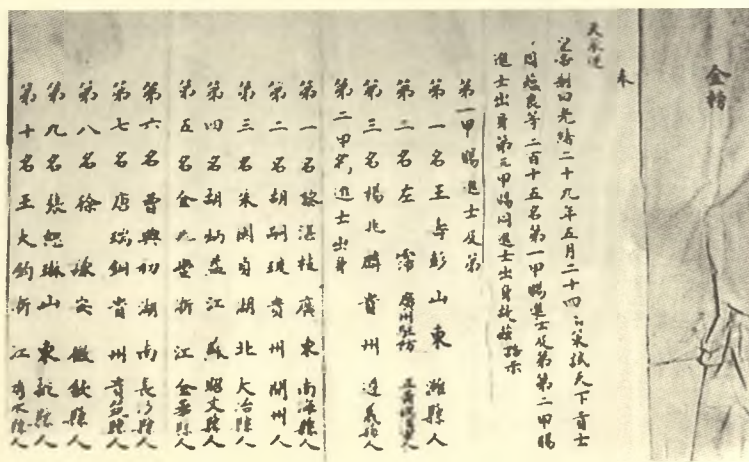 金榜
天承運
皇帝制曰光緒二十九年五月二十四日策試天下貢士
周蘊良等三百十五名第一甲賜進士及第第二甲賜
進士出身第三甲賜同進士出身故茲誥示
第一甲賜進士及第
第一名王壽彭山東濰縣人
第二名左霈廣州駐防正黃旗漢軍人
第三名楊兆麟貴州遵義縣人
第二甲賜進士出身
第一名黎湛枝廣東南海縣人
第二名胡嗣瑗貴州開州人
第三名朱國楨湖北大冶縣人
第四名胡炳益江蘇昭文縣人
第五名金兆豐浙江金華縣人
第六名曹典初湖南長沙縣人
第七名唐瑞銅貴州貴筑縣人
第八名徐謙安徽歙縣人
第九名張恕琳山東縣人
第十名王大鈞浙江秀水縣人